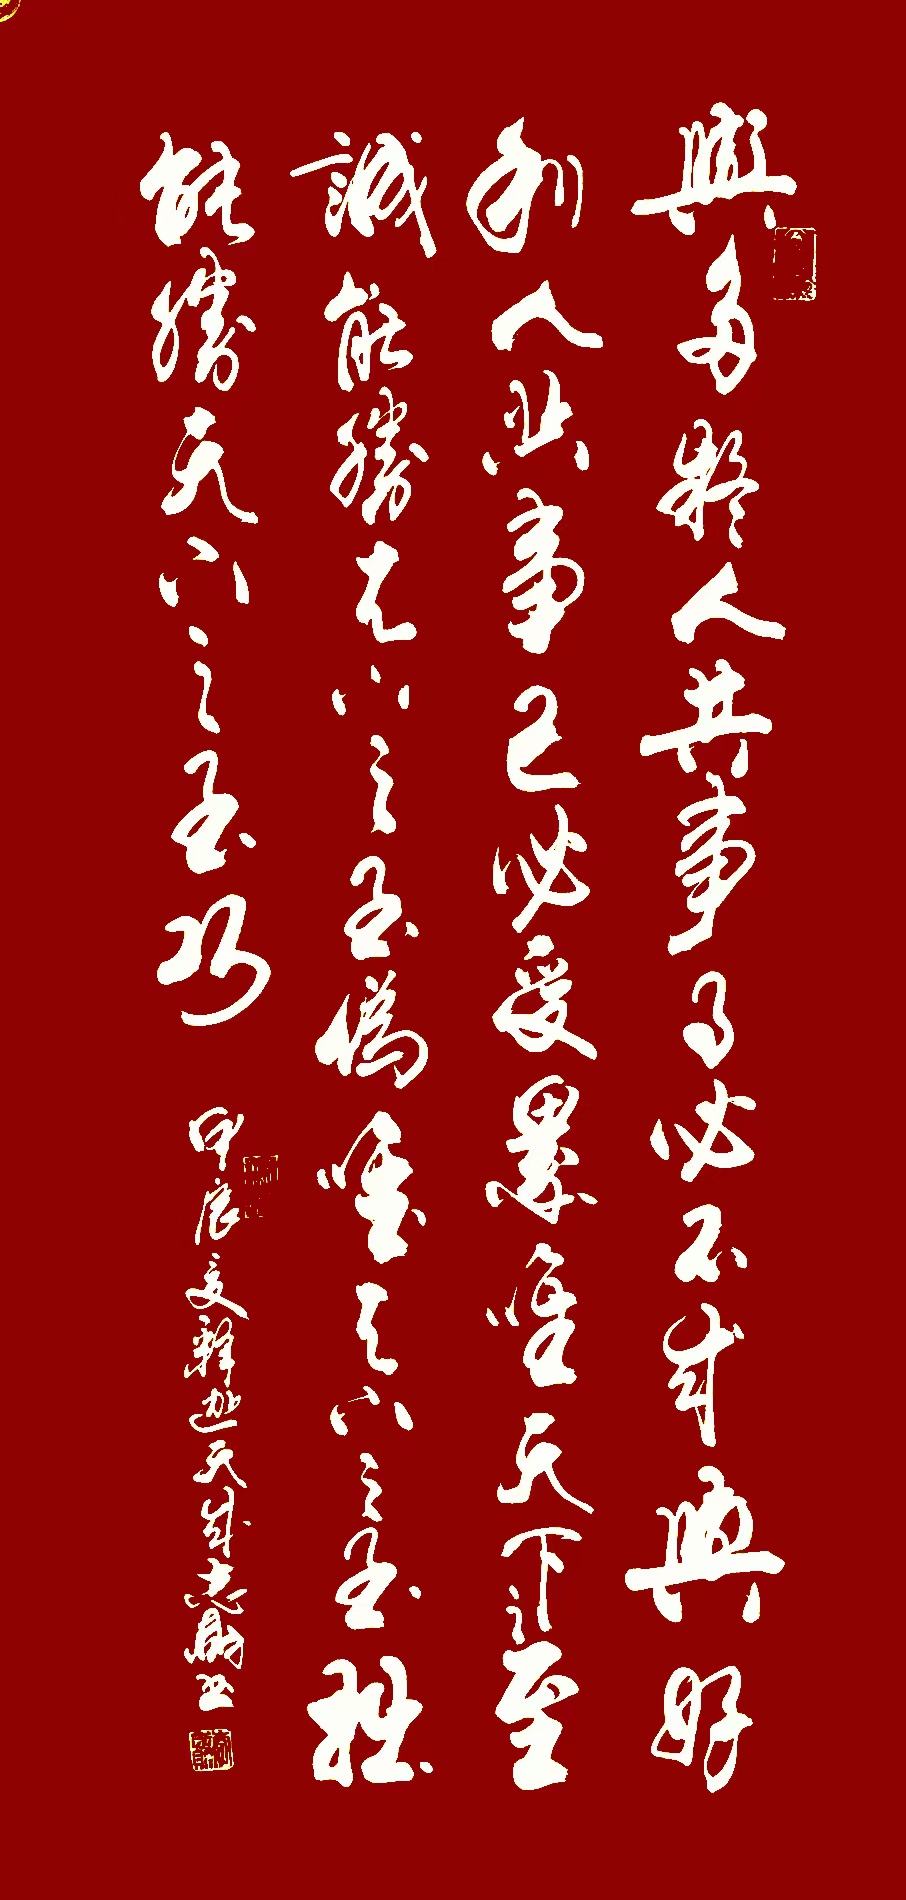 與多疑人共事事必不成與好
利人共事己必受累唯天下之至
誠能勝天下之至偽唯天下之至拙
能勝天下之至巧
甲辰夏釋迦天成志財书